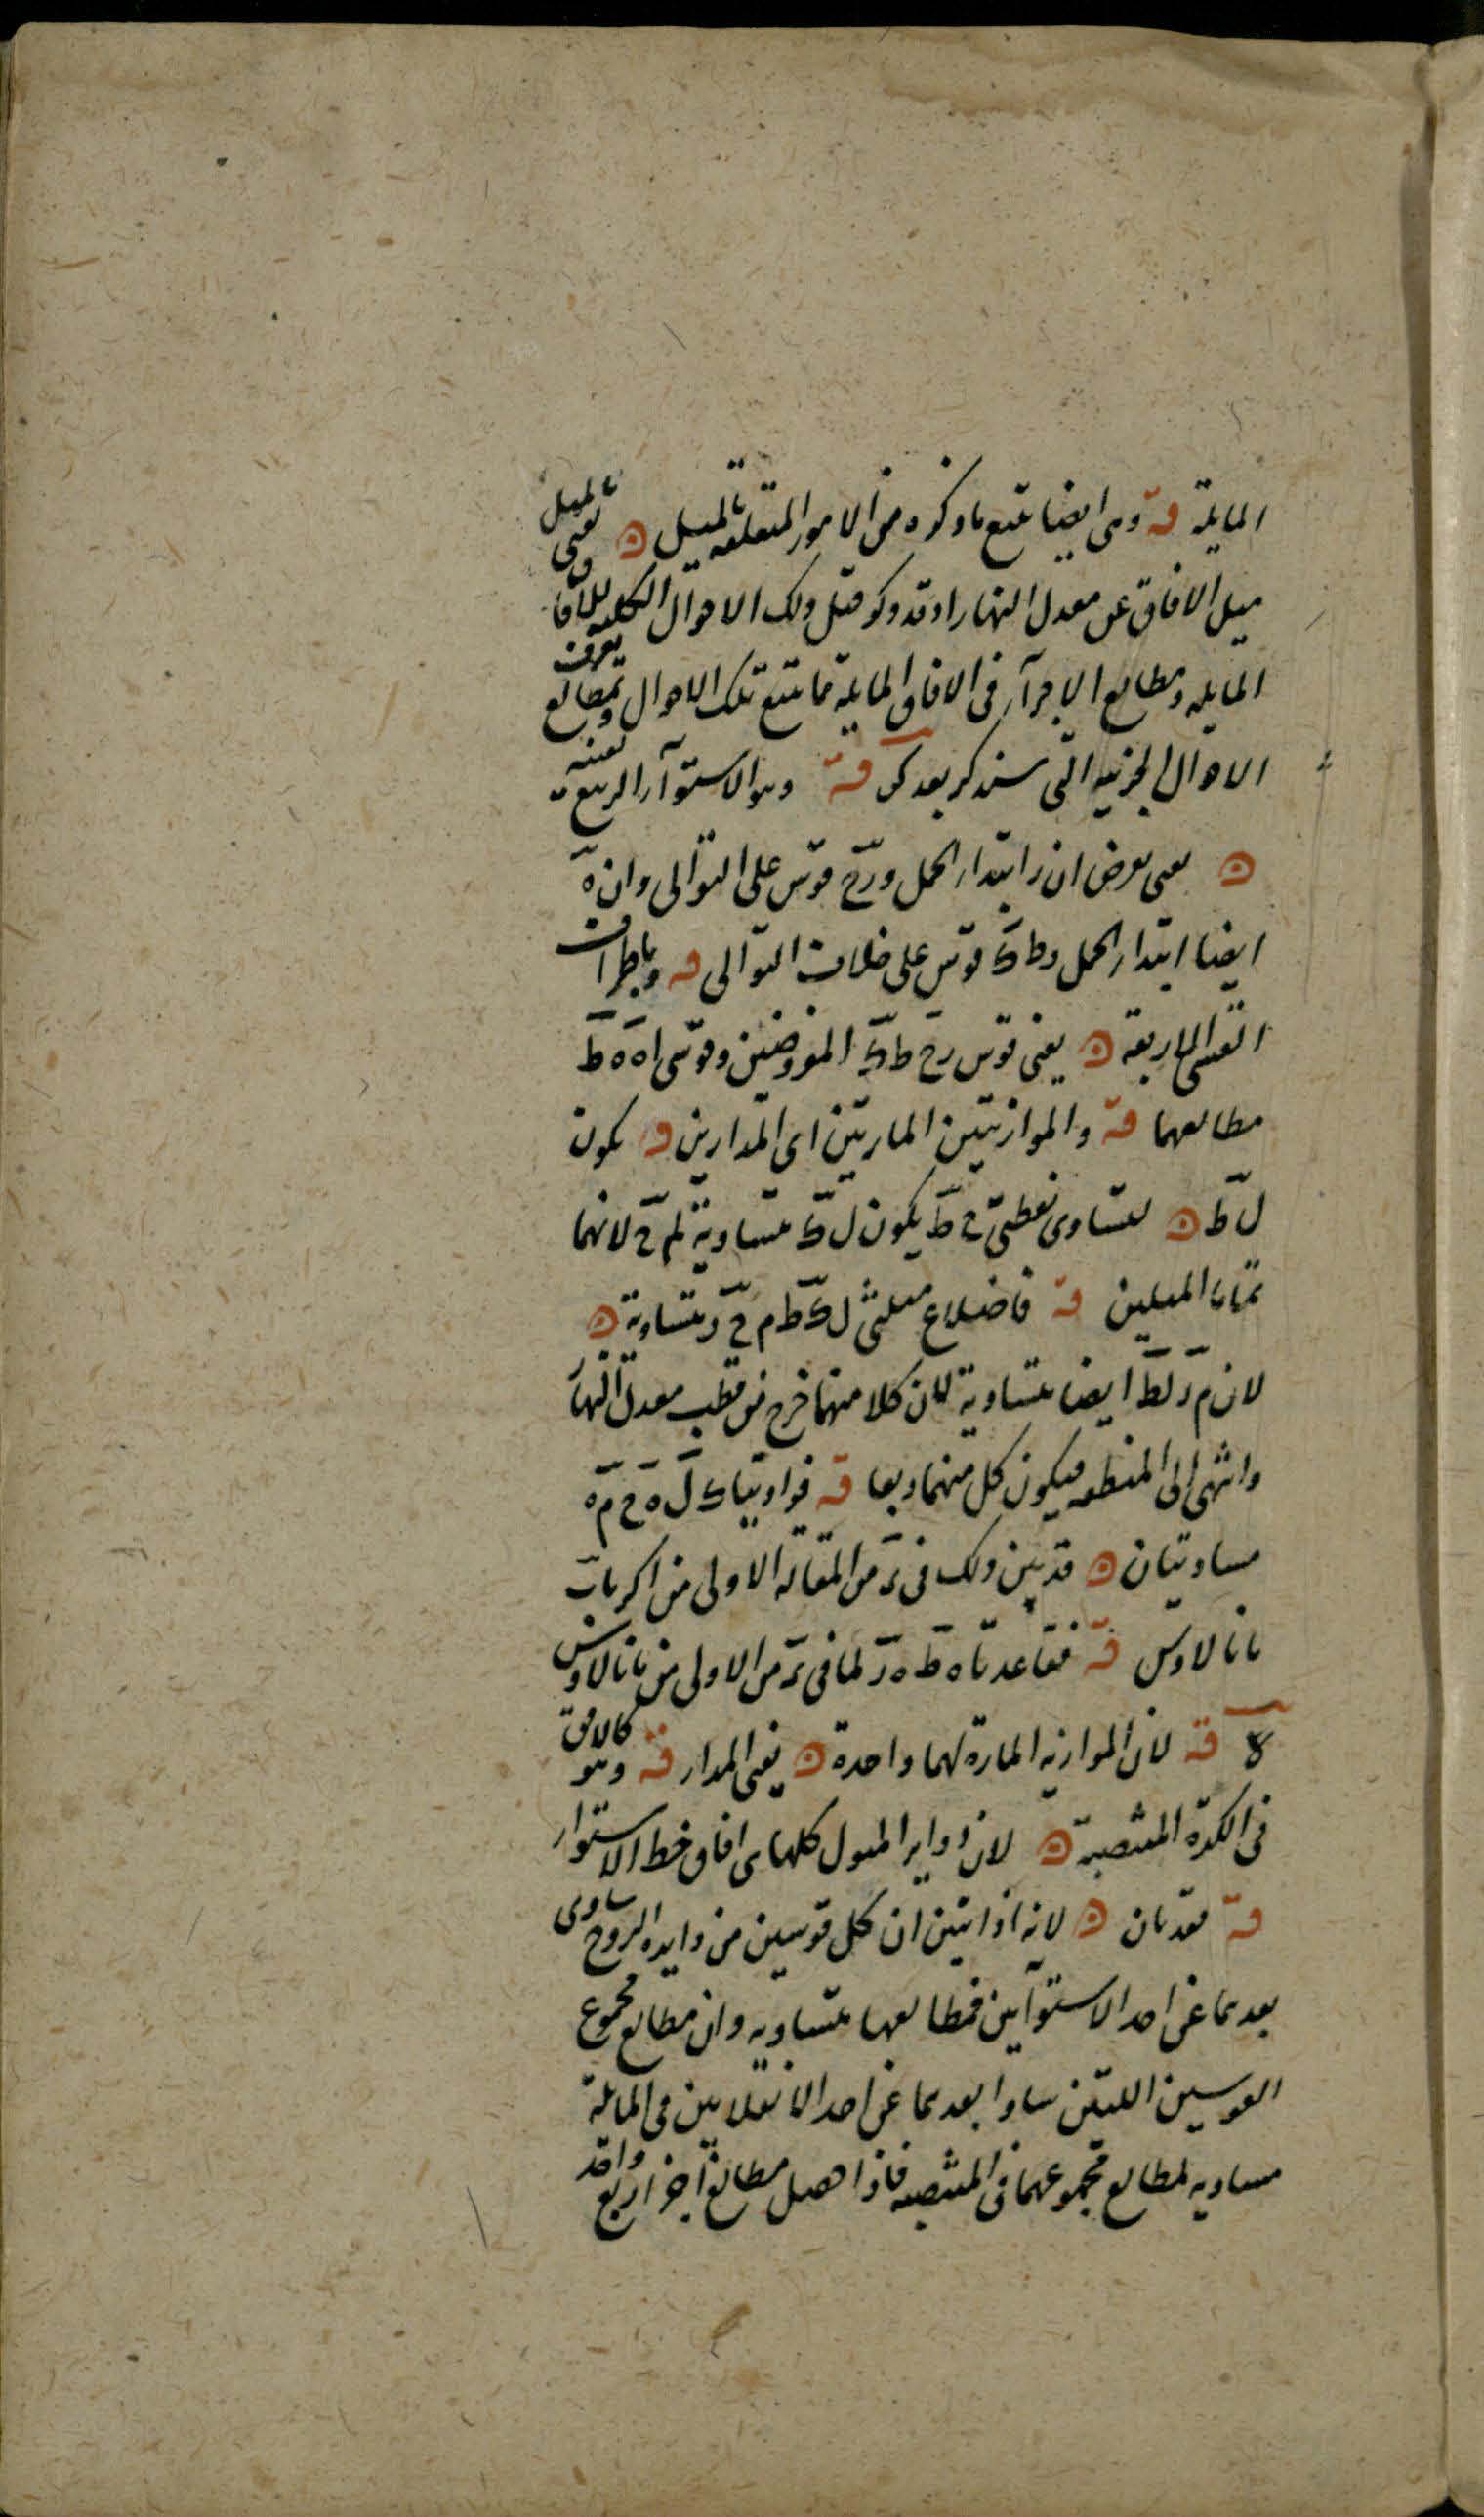 المايلة قه وهى ايضا تتبع ما ذكره من الامور المتعلقة بالميل ﻥ يعنى بالميل
ميل الافاق عن معدل النهار اذ قد ذكر قبل ذلك الاحوال الكلية للافاق
المايله ومطالع الاجزآء فى الافاق المايلة مما تتبع تلك الاحوال وبمطالع يعرف
الاحوال الجزئيه التى ستذكر بعد كر قه وهو الاستوآء الربيعى بعينه
ﻥ يعنى نفرض ان ر ابتداء الحمل ورح قوس على التوالى وان ه
ايضا ابتداء الحمل وط ك قوس على خلاف التوالى قه وباطراف
القسى الاربعة ﻥ يعنى قوس رح ط ك المفروضتين وقوسى اه ه ط
مطالعهما قه والموازيتين المارتين اى المدارين قه يكون
ل ط ﻥ لتساوى نقطتى ح ط يكون ل ك متساوية لم ح لانهما
تماما الميلين قه فاضلاع مثلثى ل ك ط م ح ر متساوية ﻥ
لان م ر لط ايضا متساوية لان كلا منهما خرج من قطب معدل النهار
وانتهى الى المنطقه فيكون كل منهما ربعا قه فزاويتا ك ل ه ح م ه
متساويتان ﻥ قد تبين ذلك فى من المقالة الاولى من اكر مانا
مانالاوس قه فقاعدتا ه ط ه ر لما فى من الاولى من مانالاوس
قه لان الموازيه المارة لهما واحدة ﻥ يعنى المدار قه وهو كالافق
فى الكرة المنتصبة ﻥ لان دواير الميول كلها من افاق خط الاستواء
قه فقد بان ﻥ لانه اذا تبين ان كل قوسين من دايرة البروج تساوى
بعدهما عن احد الاستوآيين فمطالعهما متساويه وان مطالع مجموع
القوسين اللتين تساوا بعدهما عن احد الانقلابين فى المايلة
مساويه لمطالع مجموعهما فى المنتصبه فاذا حصل مطالع اجزاء ربع واحد